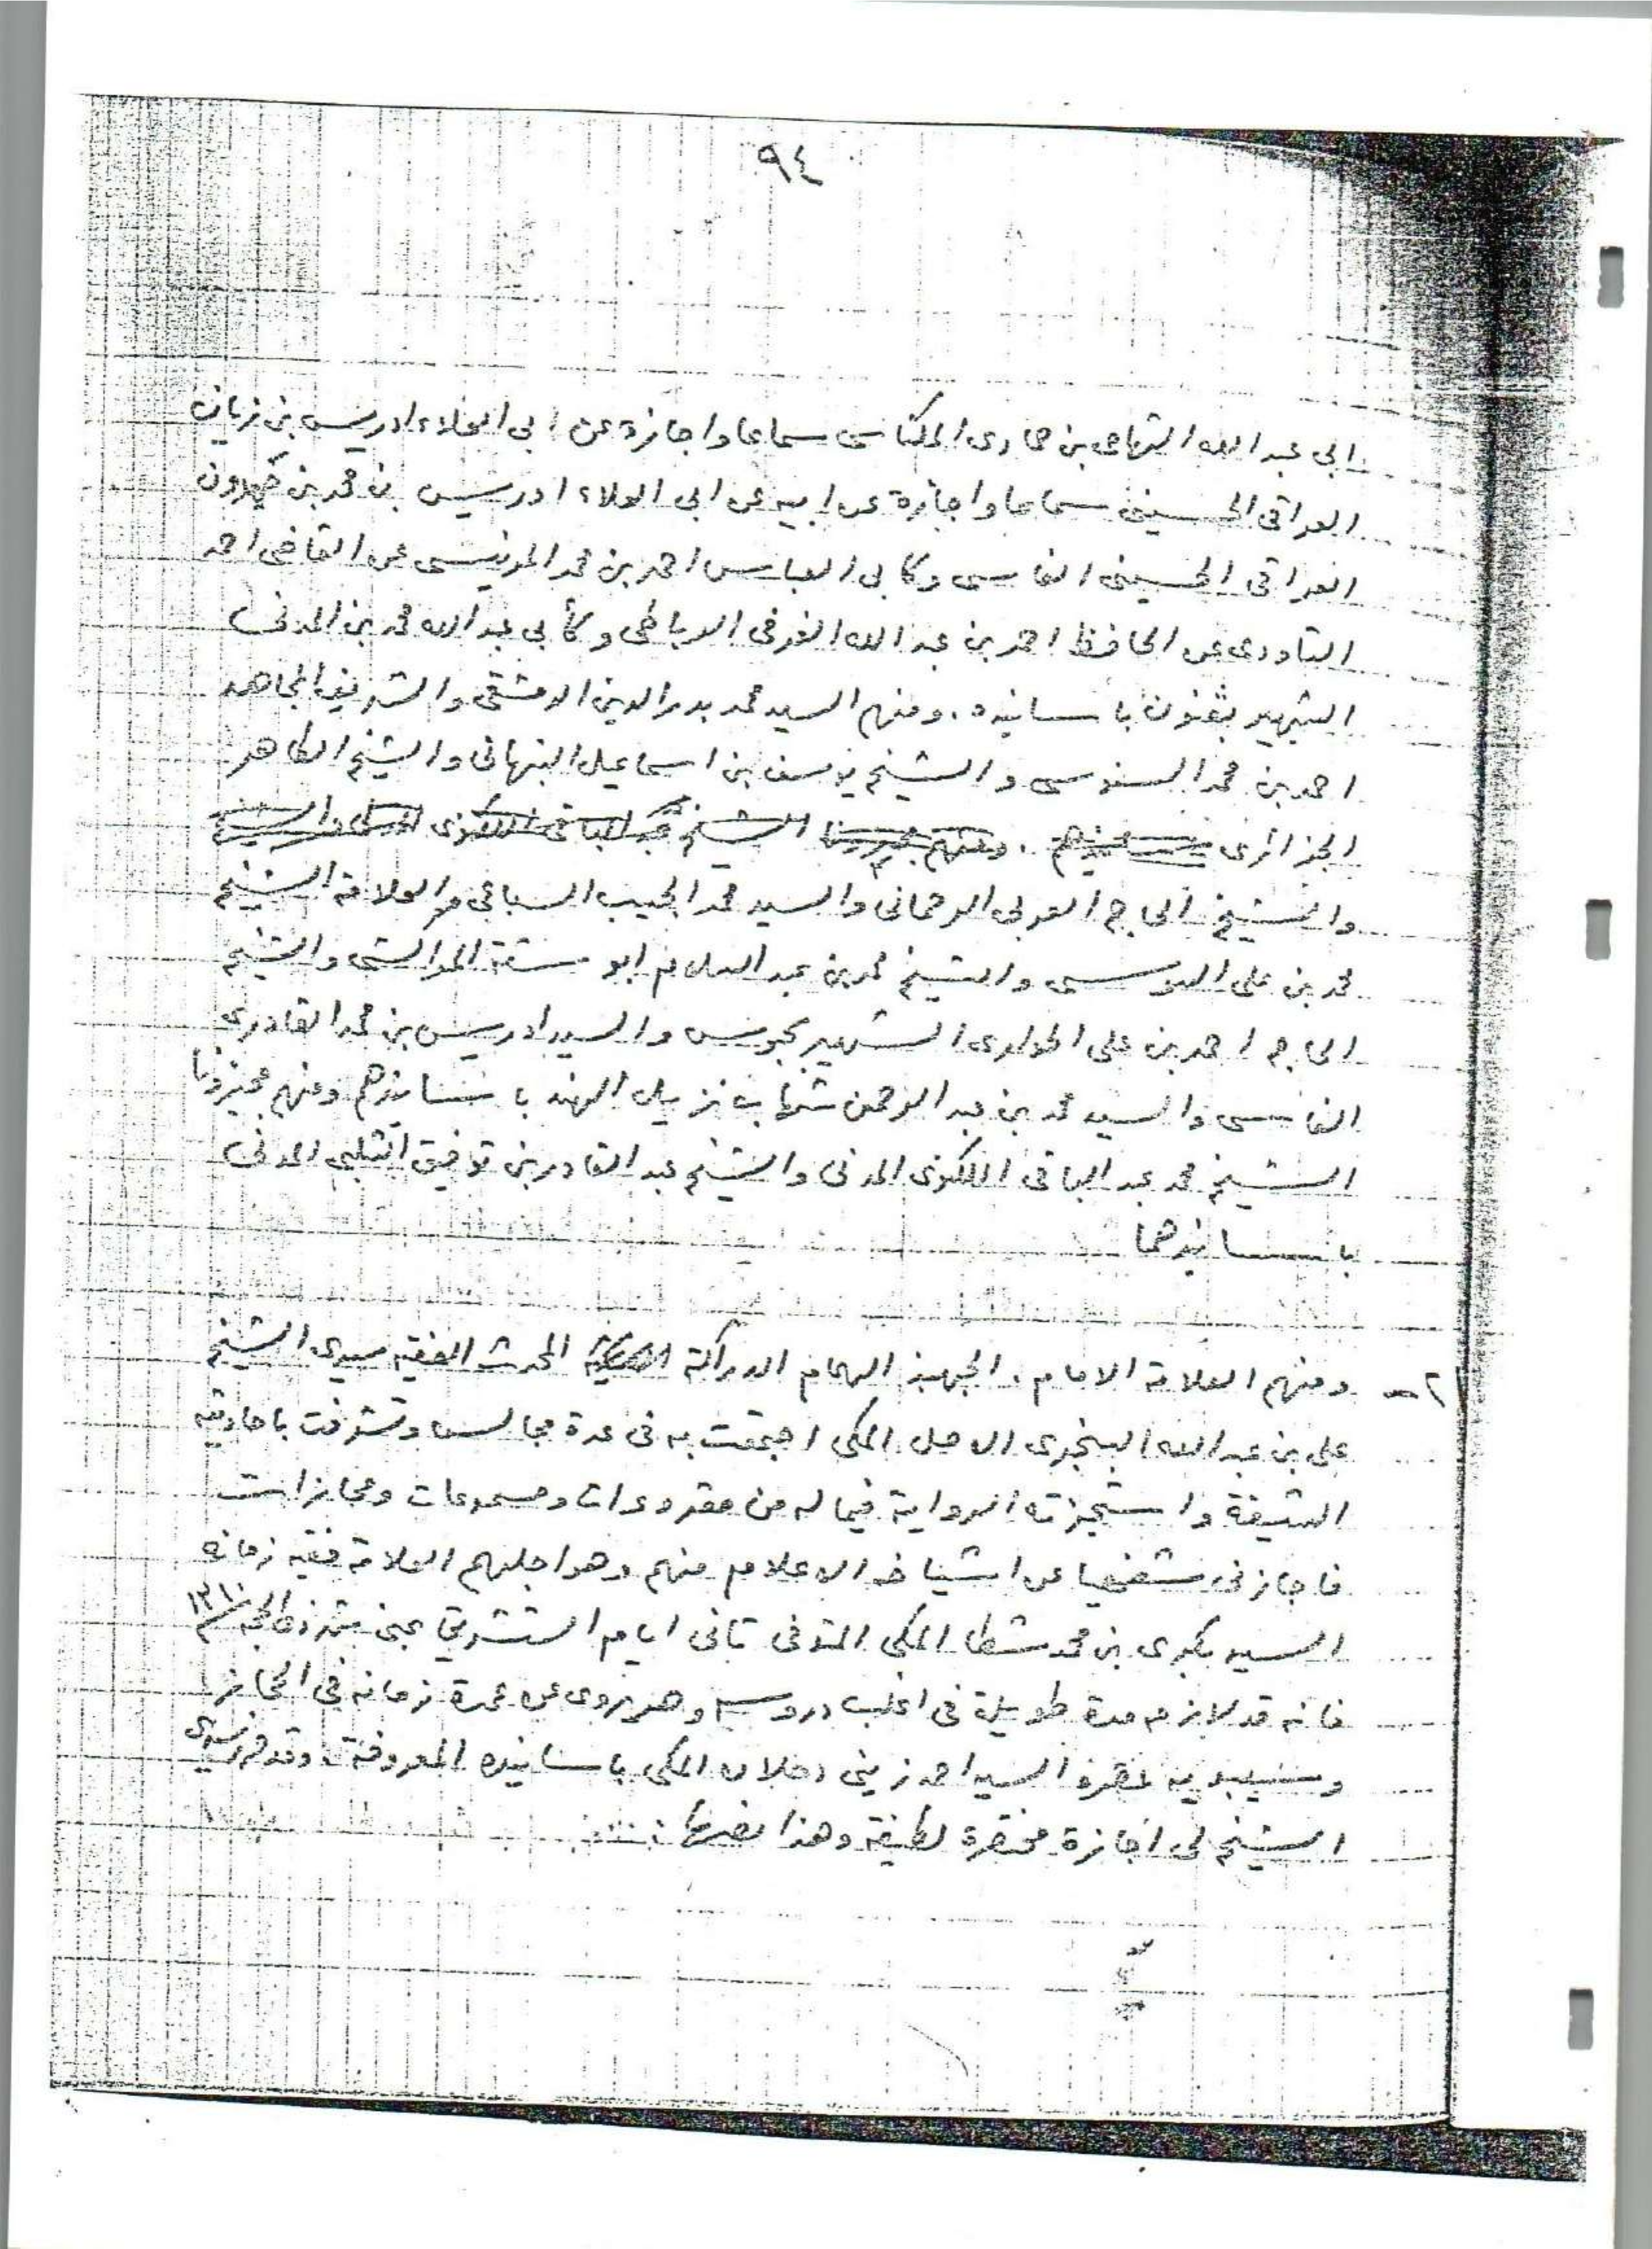 ٩٤
ابى عبد الله التهامى بن حمادى المكناسى سماعا واجازة عن ابى العلاء ادريس بن زيان
العراقى الحسينى سماعا واجازة عن ابيه عن ابى العلاء ادريس بن محمد بن حمدون
العراقى الحسينى الفاسى وكابى العباس احمد بن محمد المرنيسى عن القاضى احمد
التاودى عن الحافظ احمد بن عبد الله الغربى الرباطى وكأبى عبد الله محمد بن المدنى
الشهير بقنون باسانيده . ومنهم السيد محمد بدر الدين الدمشقى والشريف المجاهد
احمد بن محمد السنوسى والشيخ يوسف بن اسماعيل النبهانى والشيخ الطاهر
الجزائرى باسانيدهم . ومنهم مجيزنا الشيخ عبد الباقى اللكنوى المدنى والشيخ
والشيخ الحاج العربى الرحمانى والسيد محمد الحبيب السباعى والعلامة الشيخ
محمد بن على السوسى والشيخ محمد بن عبد السلام ابو ستة المراكشى والشيخ
الحاج احمد بن على الشهير بجبوس والسيد ادريس بن محمد القادرى
الفاسى والسيد محمد بن عبد الرحمن شهاب نزيل الهند باسانيدهم ومنهم مجيزونا
الشيخ محمد عبد الباقى اللكنوى المدنى والشيخ عبد القادر بن توفيق الشلبى المدنى
باسانيدهما
٢ - ومنهم العلامة الامام . الجهبذ الهمام الدراكة المحدث الفقيه سيدى الشيخ
على بن عبد الله البنجرى الاصل المكى اجتمعت به فى عدة مجالس وتشرفت باحاديثه
الشيقة واستجزته الرواية فيما له من مقروءات ومسموعات ومجازات
فاجازنى شفهيا عن اشياخه الاعلام منهم وهو اجلهم العلامة فقيه زمانه
السيد بكرى بن محمد شطا المكى المتوفى ثانى ايام التشريق بمنى ذى الحجة ١٣١٠
فانه قد لازمه مدة طويلة فى اغلب دروسه وهو يروى عن عمدة زمانه فى الحجاز
السيد احمد زينى دحلان المكى باسانيده المعروفة . وقد حرر سيدى
الشيخ لى اجازة مختصرة لطيفة وهذا نصها :